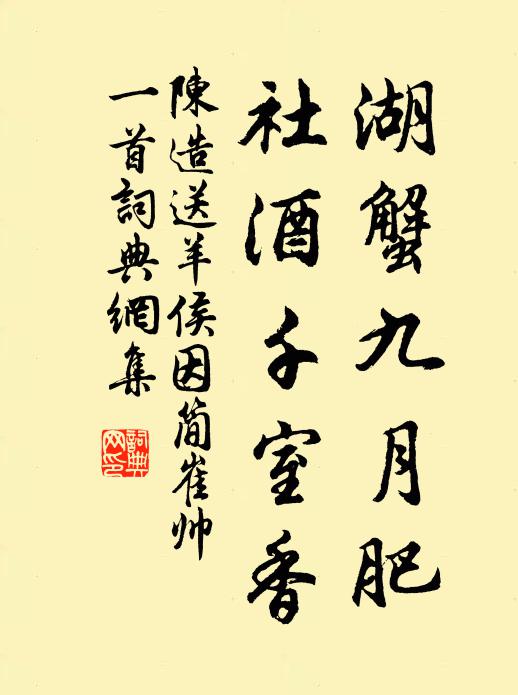 湖蟹九月肥
社酒千室香
陳造送羊侯因简崔帅
一首詞典網集
詞典
网印